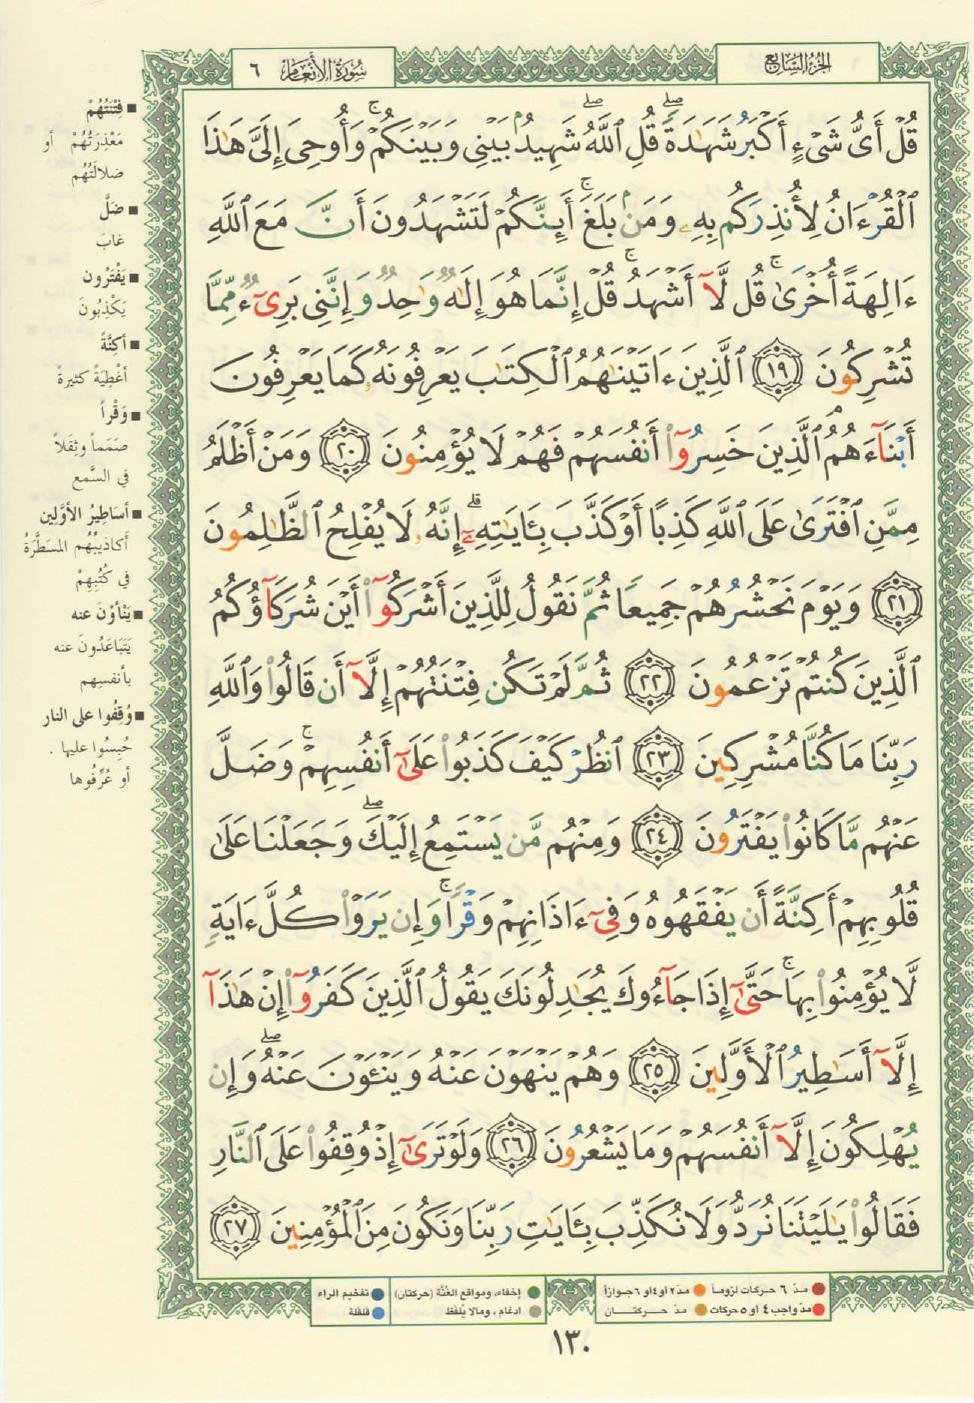 الجزء السابع
سورة الأنعام ٦
قُلْ أَىُّ شَىْءٍ أَكْبَرُ شَهَـٰدَةً ۖ قُلِ ٱللَّهُ ۖ شَهِيدُۢ بَيْنِى وَبَيْنَكُمْ ۚ وَأُوحِىَ إِلَىَّ هَـٰذَا
ٱلْقُرْءَانُ لِأُنذِرَكُم بِهِۦ وَمَنۢ بَلَغَ ۚ أَئِنَّكُمْ لَتَشْهَدُونَ أَنَّ مَعَ ٱللَّهِ
ءَالِهَةً أُخْرَىٰ ۚ قُل لَّآ أَشْهَدُ ۚ قُلْ إِنَّمَا هُوَ إِلَـٰهٌ وَٰحِدٌ وَإِنَّنِى بَرِىٓءٌ مِّمَّا
تُشْرِكُونَ ١٩ ٱلَّذِينَ ءَاتَيْنَـٰهُمُ ٱلْكِتَـٰبَ يَعْرِفُونَهُۥ كَمَا يَعْرِفُونَ
أَبْنَآءَهُمُ ۘ ٱلَّذِينَ خَسِرُوٓا۟ أَنفُسَهُمْ فَهُمْ لَا يُؤْمِنُونَ ٢٠ وَمَنْ أَظْلَمُ
مِمَّنِ ٱفْتَرَىٰ عَلَى ٱللَّهِ كَذِبًا أَوْ كَذَّبَ بِـَٔايَـٰتِهِۦٓ ۗ إِنَّهُۥ لَا يُفْلِحُ ٱلظَّـٰلِمُونَ
٢١ وَيَوْمَ نَحْشُرُهُمْ جَمِيعًا ثُمَّ نَقُولُ لِلَّذِينَ أَشْرَكُوٓا۟ أَيْنَ شُرَكَآؤُكُمُ
ٱلَّذِينَ كُنتُمْ تَزْعُمُونَ ٢٢ ثُمَّ لَمْ تَكُن فِتْنَتُهُمْ إِلَّآ أَن قَالُوا۟ وَٱللَّهِ
رَبِّنَا مَا كُنَّا مُشْرِكِينَ ٢٣ ٱنظُرْ كَيْفَ كَذَبُوا۟ عَلَىٰٓ أَنفُسِهِمْ ۚ وَضَلَّ
عَنْهُم مَّا كَانُوا۟ يَفْتَرُونَ ٢٤ وَمِنْهُم مَّن يَسْتَمِعُ إِلَيْكَ ۖ وَجَعَلْنَا عَلَىٰ
قُلُوبِهِمْ أَكِنَّةً أَن يَفْقَهُوهُ وَفِىٓ ءَاذَانِهِمْ وَقْرًا ۚ وَإِن يَرَوْا۟ كُلَّ ءَايَةٍ
لَّا يُؤْمِنُوا۟ بِهَا ۚ حَتَّىٰٓ إِذَا جَآءُوكَ يُجَـٰدِلُونَكَ يَقُولُ ٱلَّذِينَ كَفَرُوٓا۟ إِنْ هَـٰذَآ
إِلَّآ أَسَـٰطِيرُ ٱلْأَوَّلِينَ ٢٥ وَهُمْ يَنْهَوْنَ عَنْهُ وَيَنْـَٔوْنَ عَنْهُ ۖ وَإِن
يُهْلِكُونَ إِلَّآ أَنفُسَهُمْ وَمَا يَشْعُرُونَ ٢٦ وَلَوْ تَرَىٰٓ إِذْ وُقِفُوا۟ عَلَى ٱلنَّارِ
فَقَالُوا۟ يَـٰلَيْتَنَا نُرَدُّ وَلَا نُكَذِّبَ بِـَٔايَـٰتِ رَبِّنَا وَنَكُونَ مِنَ ٱلْمُؤْمِنِينَ ٢٧
■ فِتْنَتُهُمْ
مَعْذِرَتُهُمْ أو
ضلالَتُهم
■ ضَلَّ
غابَ
■ يَفْتَرُون
يَكْذِبُونَ
■ أكِنَّةً
أغْطِيَةً كثيرةً
■ وَقْراً
صَمَماً وثِقَلاً
في السَّمع
■ أساطِيرُ الأوَّلين
أكاذيبُهُم المسَطَّرَةُ
في كُتُبِهِمْ
■ يَنْأوْن عنه
يَتَبَاعَدُونَ عنه
بأنفسِهِم
■ وُقِفُوا على النار
حُبِسُوا عليها .
أو عُرِّفُوها
مدّ ٦ حركات لزوماً
مدّ ٢ أو ٤ أو ٦ جوازاً
مدّ واجب ٤ أو ٥ حركات
مدّ حركتان
إخفاء، ومواقع الغُنَّة (حركتان)
ادغام، ومالا يُلفَظ
تفخيم الراء
قلقلة
١٣٠